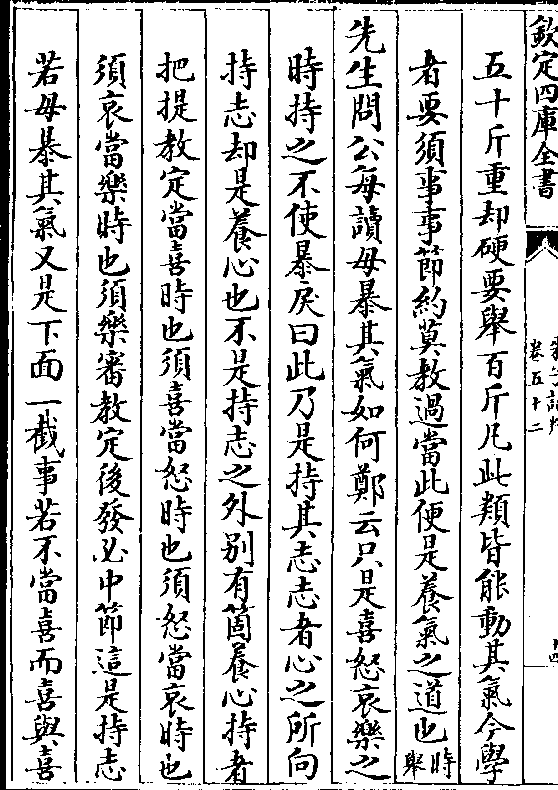 欽定四庫全書
卷五十二
五十斤重却硬要舉百斤凡此類皆能動其氣今學
者要須事事節約莫教過當此便是養氣之道也時舉
先生問公每讀毋暴其氣如何鄭云只是喜怒哀樂之
時持之不使暴戾曰此乃是持其志志者心之所向
持志却是養心也不是持志之外别有箇養心持者
把提教定當喜時也須喜當怒時也須怒當哀時也
須哀當樂時也須樂審教定後發必中節這是持志
若毋暴其氣又是下面一截事若不當喜而喜與喜